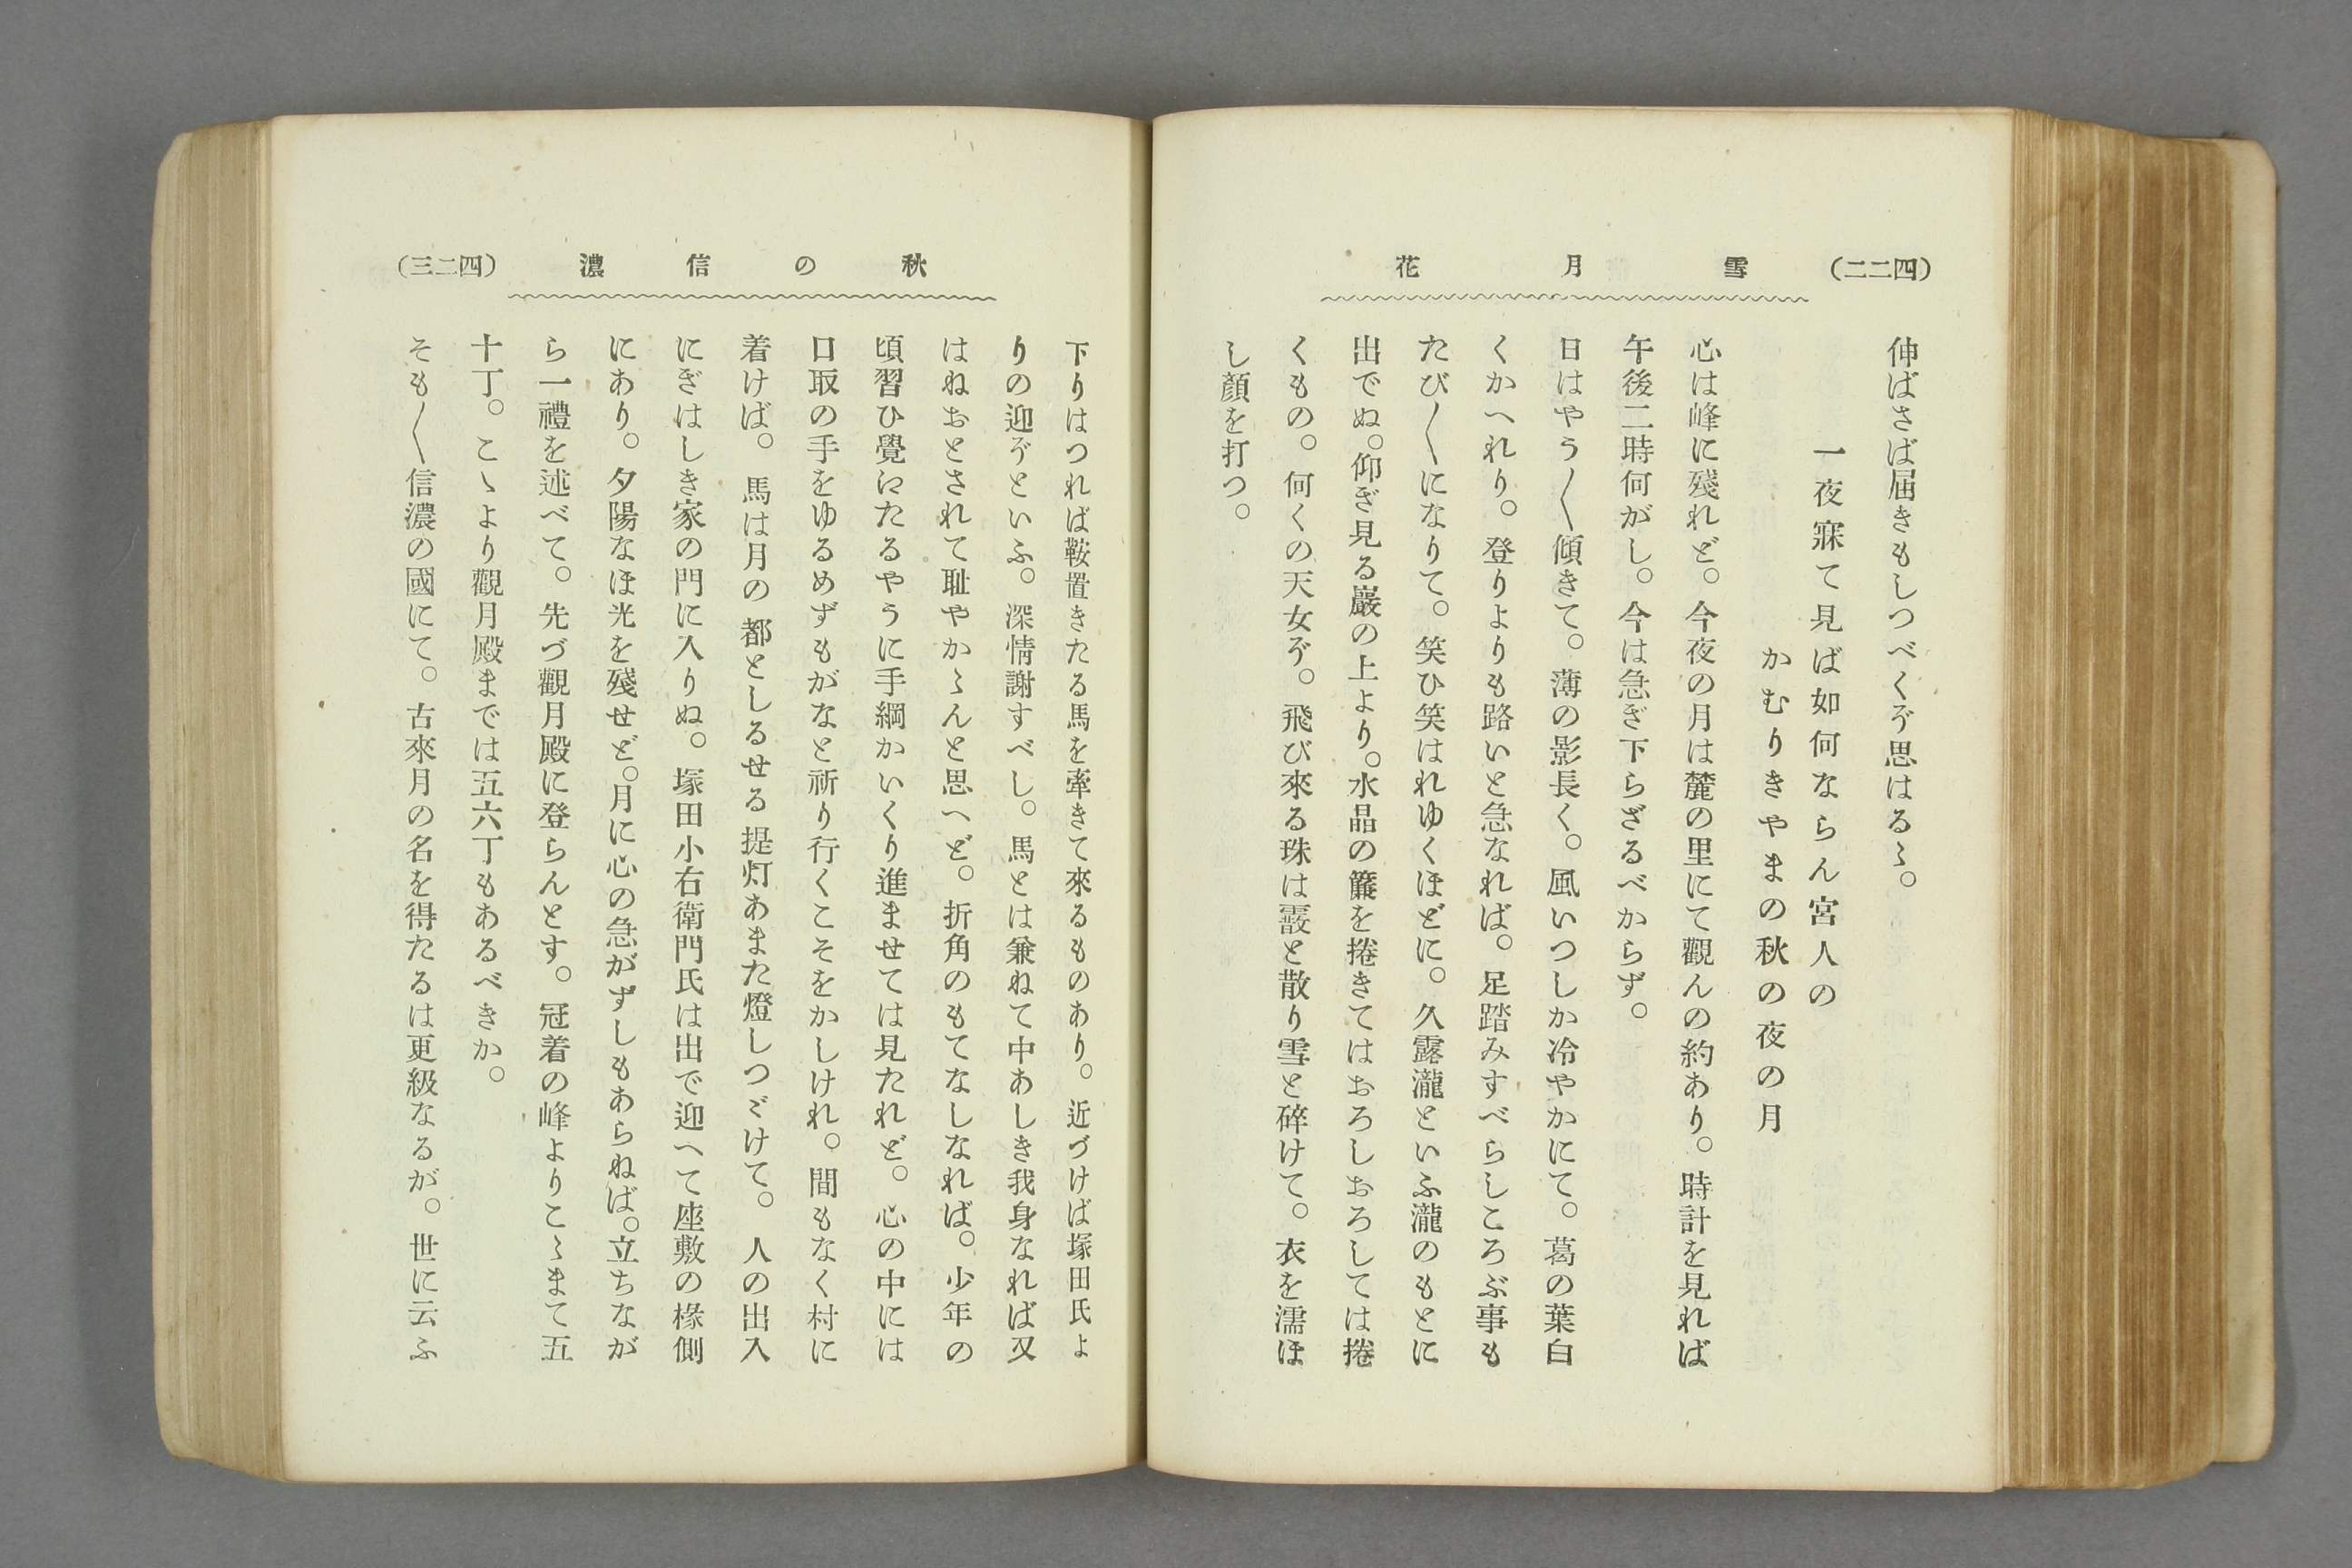 (四二二)
雪月花
伸ばさば届きもしつべくぞ思はるゝ。
一夜寐て見ば如何ならん宮人の
かむりきやまの秋の夜の月
心は峰に殘れど。今夜の月は麓の里にて觀んの約あり。時計を見れば
午後二時何がし。今は急ぎ下らざるべからず。
日はやう〳〵傾きて。薄の影長く。風いつしか冷やかにて。葛の葉白
くかへれり。登りよりも路いと急なれば。足踏みすべらしころぶ事も
たび〳〵になりて。笑ひ笑はれゆくほどに。久露瀧といふ瀧のもとに
出でぬ。仰ぎ見る巖の上より。水晶の簾を捲きてはおろしおろしては捲
くもの。何くの天女ぞ。飛び來る珠は霰と散り雪と碎けて。衣を濡ほ
し顔を打つ。
秋の信濃
(四二三)
下りはつれば鞍置きたる馬を牽きて來るものあり。近づけば塚田氏よ
りの迎ぞといふ。深情謝すべし。馬とは兼ねて中あしき我身なれば又
はねおとされて耻やかゝんと思へど。折角のもてなしなれば。少年の
頃習ひ覺えたるやうに手綱かいくり進ませては見たれど。心の中には
口取の手をゆるめずもがなと祈り行くこそをかしけれ。間もなく村に
着けば。馬は月の都としるせる提灯あまた燈しつゞけて。人の出入
にぎはしき家の門に入りぬ。塚田小右衛門氏は出で迎へて座敷の椽側
にあり。夕陽なほ光を殘せど。月に心の急がずしもあらねば。立ちなが
ら一禮を述べて。先づ觀月殿に登らんとす。冠着の峰よりこゝまて五
十丁。こゝより觀月殿までは五六丁もあるべきか。
そも〳〵信濃の國にて。古來月の名を得たるは更級なるが。世に云ふ